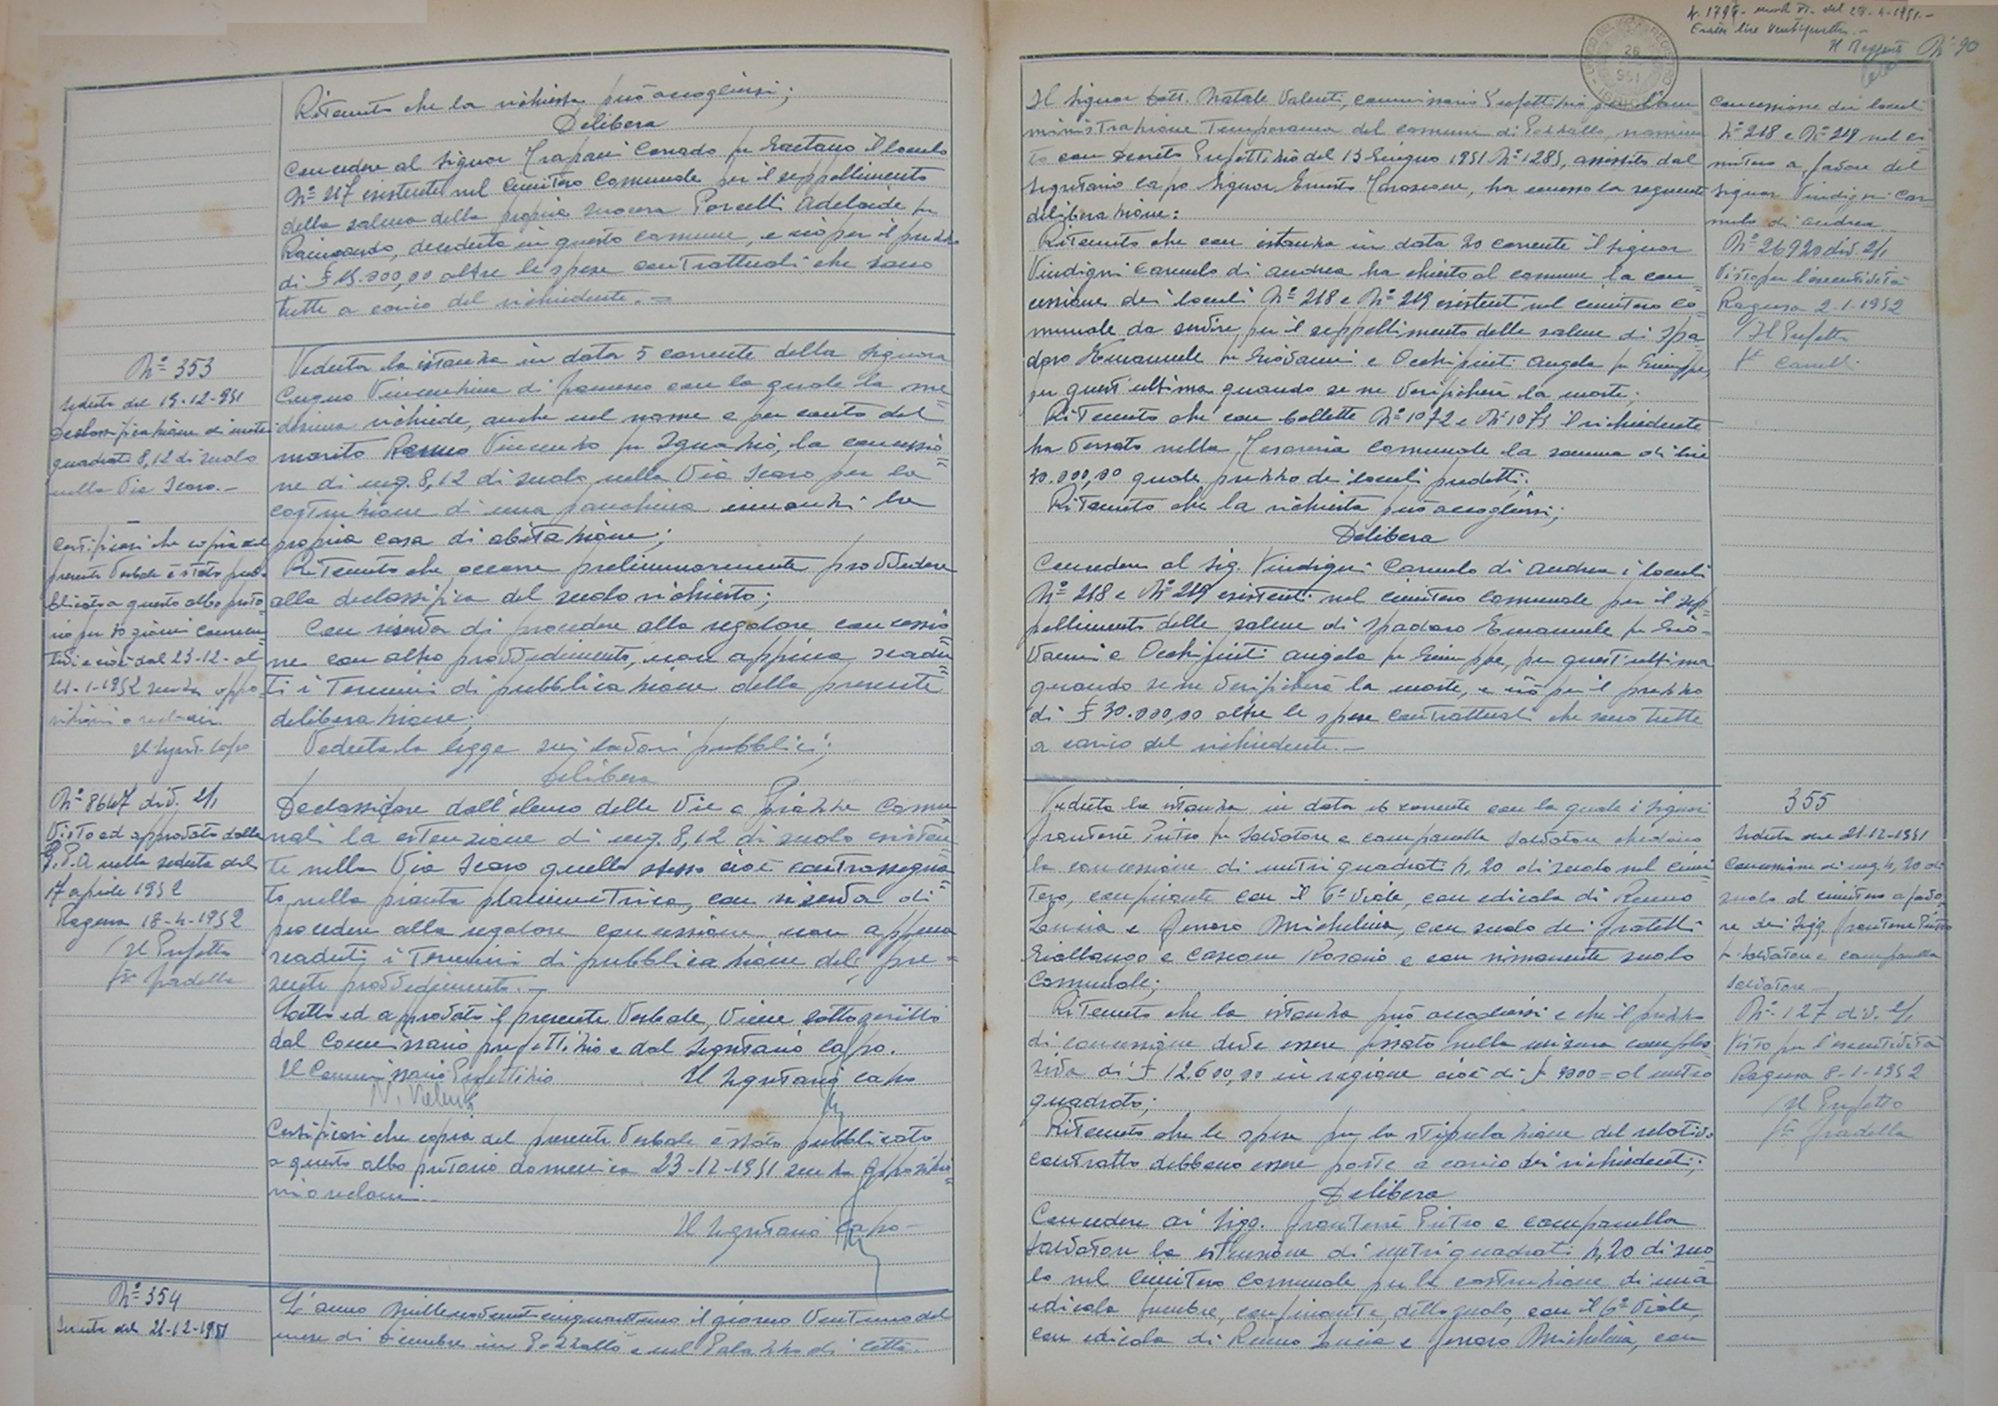 Ritenuto che la richiesta può accogliersi;
Delibera
Concedere al Signor Trapani Corrado fu Gaetano il loculo
Nº 217 esistente nel Cimitero Comunale per il seppellimento
della salma della propria suocera Porcelli Adelaide fu
Raimondo, deceduta in questo comune, e ciò per il prezzo
di £ 15.000,00 oltre le spese contrattuali che sono
tutte a carico del richiedente. =
Nº 353
Seduta del 19-12-951
Declassificazione di metri
quadrati 8,12 di suolo
nella Via Icaro. -
Certificasi che copia del
presente Verbale è stato pub-
blicato a questo albo preto-
rio per 30 giorni consecu-
tivi e cioè dal 23-12- al
21-1-1952 senza oppo-
sizioni o reclami.
Il Segret. Capo
Nº 8647 div. 2/1
Visto ed approvato dalla
G.P.A nella seduta del
17 aprile 1952
Ragusa 18-4-1952
Il Prefetto
Fto Gradella
Veduta la istanza in data 5 corrente della Signora
Cugno Vincenzina di con la quale la me-
desima richiede, anche nel nome e per conto del
marito Vincenzo fu Ignazio, la concessio-
ne di mq. 8,12 di suolo nella Via Icaro per la
costruzione di una panchina innanzi la
propria casa di abitazione;
Ritenuto che occorre preliminarmente provvedere
alla declassifica del suolo richiesto;
Con riserva di procedere alla regolare concessio-
ne con altro provvedimento, non appena scadu-
ti i Termini di pubblicazione della presente
deliberazione;
Veduta la legge sui lavori pubblici;
Delibera
Declassificare dall'elenco delle Vie e Piazze Comu-
nali la estensione di mq. 8,12 di suolo esisten-
te nella Via Icaro quello stesso cioè contrassegna-
to nella pianta planimetrica, con riserva di
procedere alla regolare concessione non appena
scaduti i Termini di pubblicazione del pre-
sente provvedimento. -
Letto ed approvato il presente Verbale, Viene sottoscritto
dal Commissario prefettizio e dal Segretario Capo.
Il Commissario Prefettizio Il Segretario Capo
N. Valenti
Certificasi che copia del presente Verbale è stato pubblicato
a questo albo pretorio domenica 23-12-1951 senza opposizio-
ni o reclami. -
Il Segretario Capo -
Nº 354
Seduta del 21-12-1951
L'anno millenovecentocinquantuno il giorno Ventuno del
mese di Dicembre in Pozzallo e nel Palazzo di Città.
N. 1797- mod. VI- del 28-4-1951.-
Esatte lire
Il Reggente
Nº 90
26
951
Il Signor Dott. Natale Valenti, Commissario Prefettizio per l'am-
ministrazione Temporanea del comune di Pozzallo, nomina-
to con decreto Prefettizio del 13 Giugno 1951 Nº 1285, assistito dal
Segretario Capo Signor Ernesto, ha emesso la seguente
deliberazione:
Ritenuto che con istanza in data 20 corrente il Signor
Vindigni Carmelo di Andrea ha chiesto al comune la con-
cessione dei loculi Nº 218 e Nº 219 esistenti nel cimitero co-
munale da servire per il seppellimento delle salme di Spa-
daro Emanuele fu Giovanni e Occhipinti Angela fu Giuseppe,
per quest'ultima quando se ne Verificherà la morte;
Ritenuto che con bollette Nº 1072 e Nº 1073 il richiedente
ha Versato nella Tesoreria Comunale la somma di lire
30.000,00 quale prezzo dei loculi predetti;
Ritenuto che la richiesta può accogliersi;
Delibera
Concedere al Sig. Vindigni Carmelo di Andrea i loculi
Nº 218 e Nº 219 esistenti nel cimitero Comunale per il sep-
pellimento delle salme di Spadaro Emanuele fu Gio-
vanni e Occhipinti Angela fu Giuseppe, per quest'ultima
quando se ne Verificherà la morte, e ciò per il prezzo
di £ 30.000,00 oltre le spese contrattuali che sono tutte
a carico del richiedente. -
Concessione dei loculi
Nº 218 e Nº 219 nel ci-
mitero a favore del
Signor Vindigni Car-
melo di Andrea
Nº 26920 div. 2/1
Visto per l'esecutività
Ragusa 2-1-1952
Il Prefetto
Fto
Veduta la istanza in data 16 corrente con la quale i Signori
Frantersè Pietro fu Salvatore e Campanella Salvatore chiedono
la concessione di metri quadrati 4,20 di suolo nel cimi-
tero, confinante con il 6º Viale, con edicola di
Lucia e Michelina, con suolo dei fratelli
Giallongo e Cascone Rosario e con rimanente suolo
Comunale;
Ritenuto che la istanza può accogliersi e che il prezzo
di concessione deve essere fissato nella misura comples-
siva di £ 12.600,00 in ragione cioè di £ 3000= al metro
quadrato;
Ritenuto che le spese per la stipulazione del relativo
contratto debbono essere poste a carico dei richiedenti;
Delibera
Concedere ai Sigg. Frantersè Pietro e Campanella
Salvatore la estensione di metri quadrati 4,20 di suo-
lo nel Cimitero Comunale per la costruzione di una
edicola funebre, confinante, detto suolo, con il 6º Viale,
con edicola di Lucia e Michelina, con
355
Seduta del 21-12-1951
Concessione di mq 4,20 di
suolo al cimitero a favo-
re dei Sigg. Frantersè Pietro
fu Salvatore e Campanella
Salvatore -
Nº 127 div. 2/1
Visto per l'esecutività
Ragusa 8-1-1952
Il Prefetto
Fto Gradella